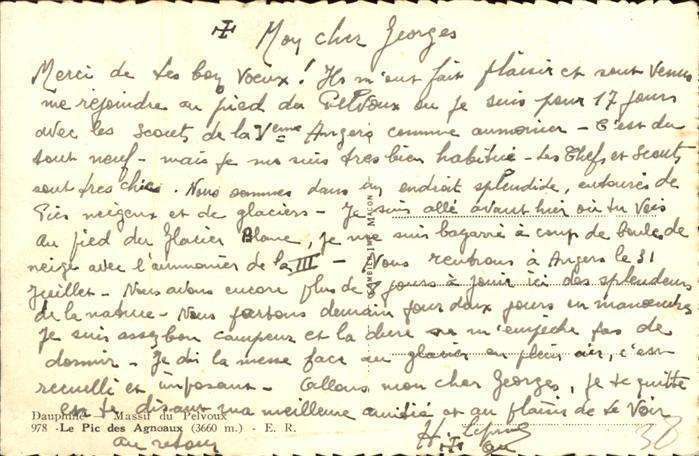 Mon cher Georges
Merci de tes bons Voeux ! Ils m'ont fait plaisir et sont venus
me rejoindre au pied du Pelvoux ou je suis pour 17 jours
avec les scouts de la Veme Angers comme aumonier - C'est du
tout neuf - mais je me suis tres bien habitué - Les Chefs et Scouts
sont tres chics. Nous sommes dans un endroit splendide, entourés de
Pics neigeux et de glaciers - Je suis allé avant hier où tu vois
au pied du Glacier Blanc, je me suis bagarré à coup de boule de
neige avec l'aumonier de la III - Nous rentrons à Angers le 31
Juillet - Nous avons encore plus de 8 jours à jouir ici des splendeurs
de la nature - Nous partons demain pour deux jours en manoeuvre
Je suis assez bon campeur et la dure ne m'empeche pas de
dormir - Je dis la messe face au glacier en plein air, c'est
recueilli et imposant - Allons mon cher Georges, je te quitte
en te disant ma meilleure amitié et au plaisir de te voir
au retour
Dauphiné - Massif du Pelvoux
978 - Le Pic des Agneaux (3660 m.) - E. R.
38